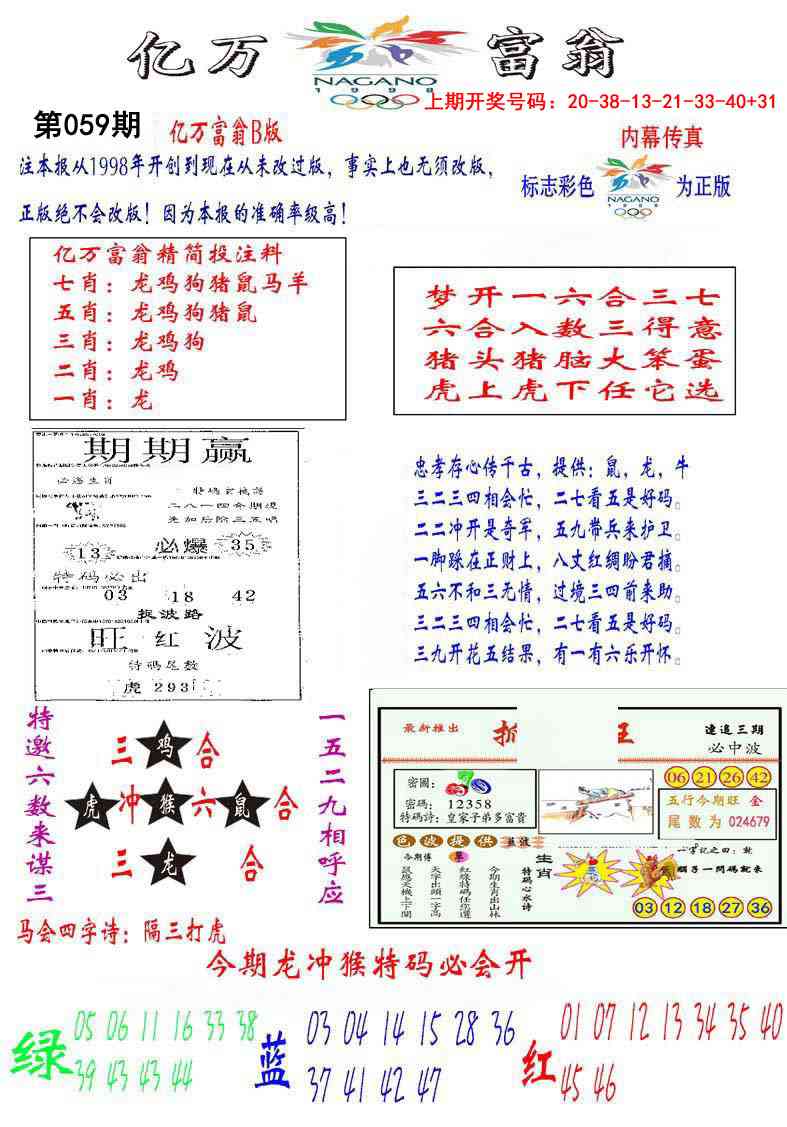 亿万富翁
NAGANO
1998
上期开奖号码：20-38-13-21-33-40+31
第059期
亿万富翁B版
内幕传真
注本报从1998年开创到现在从未改过版，事实上也无须改版，
标志彩色
NAGANO
1998
为正版
正版绝不会改版！因为本报的准确率级高！
亿万富翁精简投注料
七肖：龙鸡狗猪鼠马羊
五肖：龙鸡狗猪鼠
三肖：龙鸡狗
二肖：龙鸡
一肖：龙
梦开一六合三七
六合入数三得意
猪头猪脑大笨蛋
虎上虎下任它选
期期赢
必逢生肖
特码玄机语
二八一四合期提
先加后除三五唱
13
必爆
35
特码必出
03 18 42
捉波路
旺红波
特码尾数
虎293
忠孝存心传千古，提供：鼠，龙，牛
三二三四相会忙，二七看五是好码。
二二冲开是奇军，五九带兵来护卫。
一脚踩在正财上，八丈红绸盼君摘。
五六不和三无情，过境三四前来助。
三二三四相会忙，二七看五是好码。
三九开花五结果，有一有六乐开怀。
特邀六数来谋三
三鸡合
虎冲猴六鼠合
三龙合
一五二九相呼应
最新推出
抓
王
速追三期
必中波
密圖：
密碼：12358
特码詩：皇家子弟多富貴
06 21 26 42
五行今期旺 金
尾数为 024679
色波提供
蓝波主
今期傳
鼠應天機上下開
天字出頭一字高
紅綠特碼任您選
今期生肖出山林
特码心水诗
生肖
一字記之曰：
03 12 18 27 36
马会四字诗：隔三打虎
今期龙冲猴特码必会开
绿
05 06 11 16 33 38
39 43 43 44
蓝
03 04 14 15 28 36
37 41 42 47
红
01 07 12 13 34 35 40
45 46